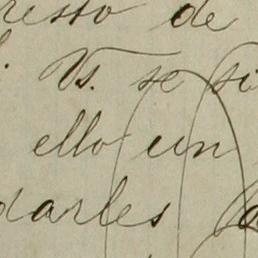 resso de
Vs. se si
ello un
darles